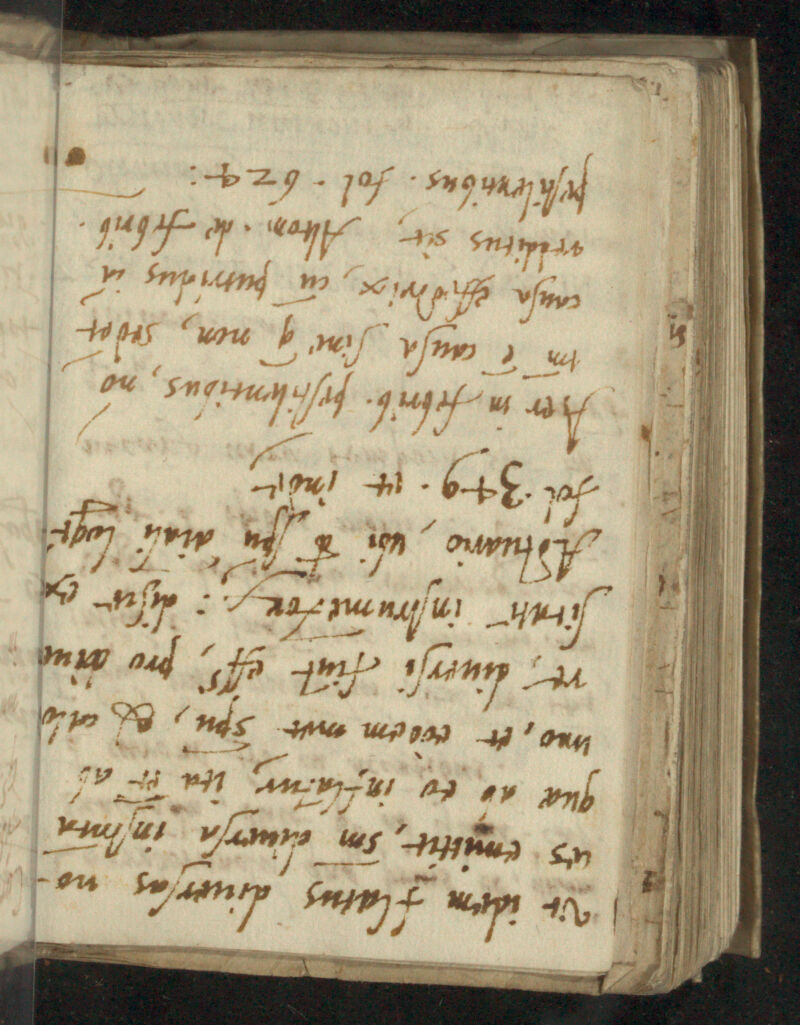 Vt idem flatus diuersas uo-
ces emittit, s͞m diuersa instr͞ta
quæ ab eo inflãtur, ita et ab
uno, et eodemmet sp̃u, & calo
re, diuersi fiũt eff̃s, pro diuer
sitate instrumẽtor:; disce ex
Actuario, ubi de sp̃u aiali
fol. 349. et inde
Aer in febrib. pestilentibus, nõ
t͞m ẽ causa sine q̃ non, sed et
causa effectrix, cũ putridus iã
redditus sit, Altom. dẽ febrib.
pestilentibus. fol. 624: